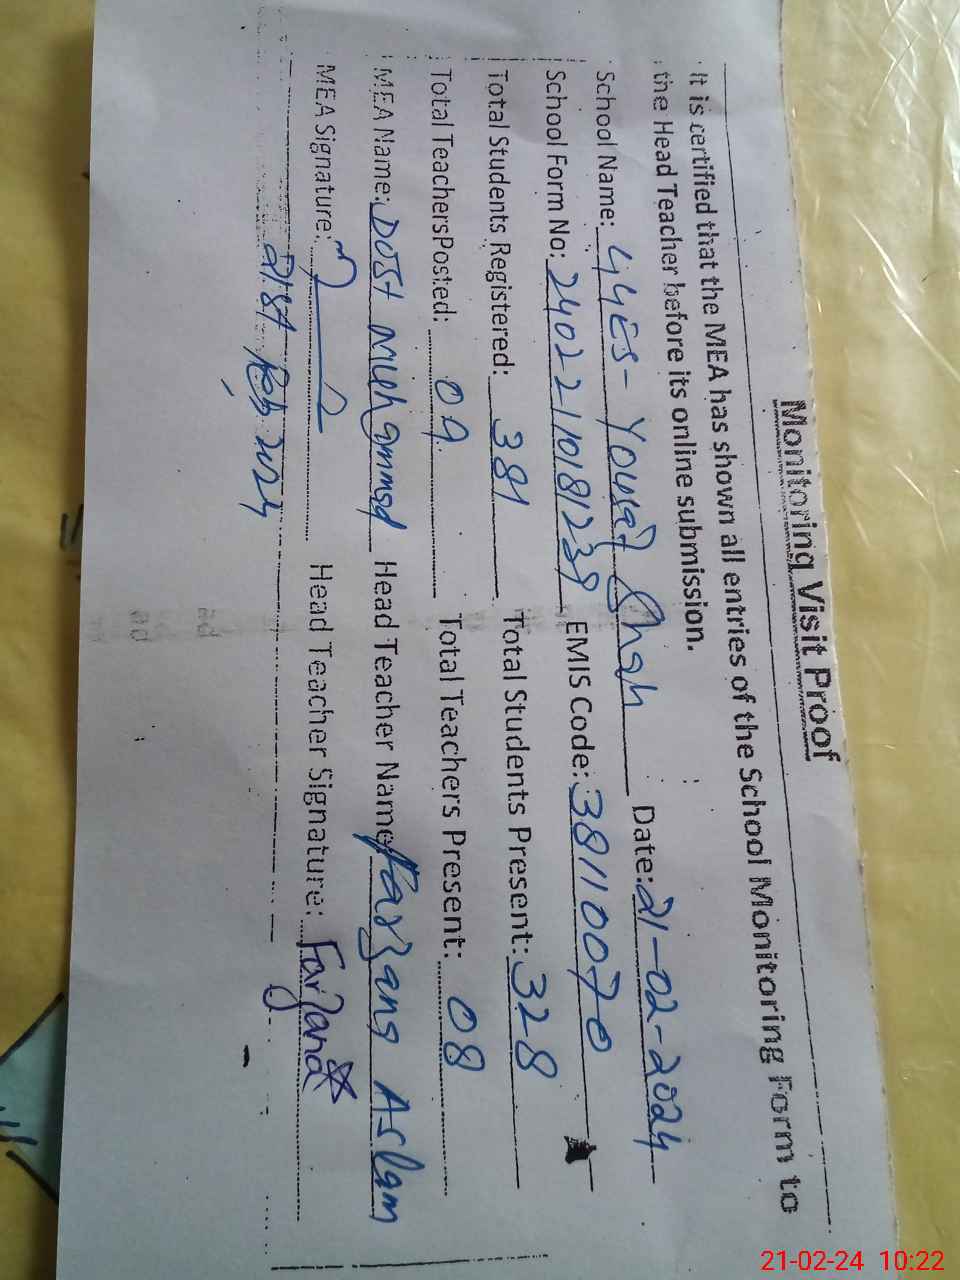 Monitoring Visit Proof
It is certified that the MEA has shown all entries of the School Monitoring Form to
the Head Teacher before its online submission.
School Name: GGES- Yousaf Shah Date: 21-02-2024
School Form No: 24022110181239 EMIS Code: 38110070
Total Students Registered: 381 Total Students Present: 328
Total TeachersPosted: 09 Total Teachers Present: 08
MEA Name: DOST Muhammad Head Teacher Name: Farzana Aslam
MEA Signature: Head Teacher Signature: Farzana
21st Feb 2024
21-02-24 10:22